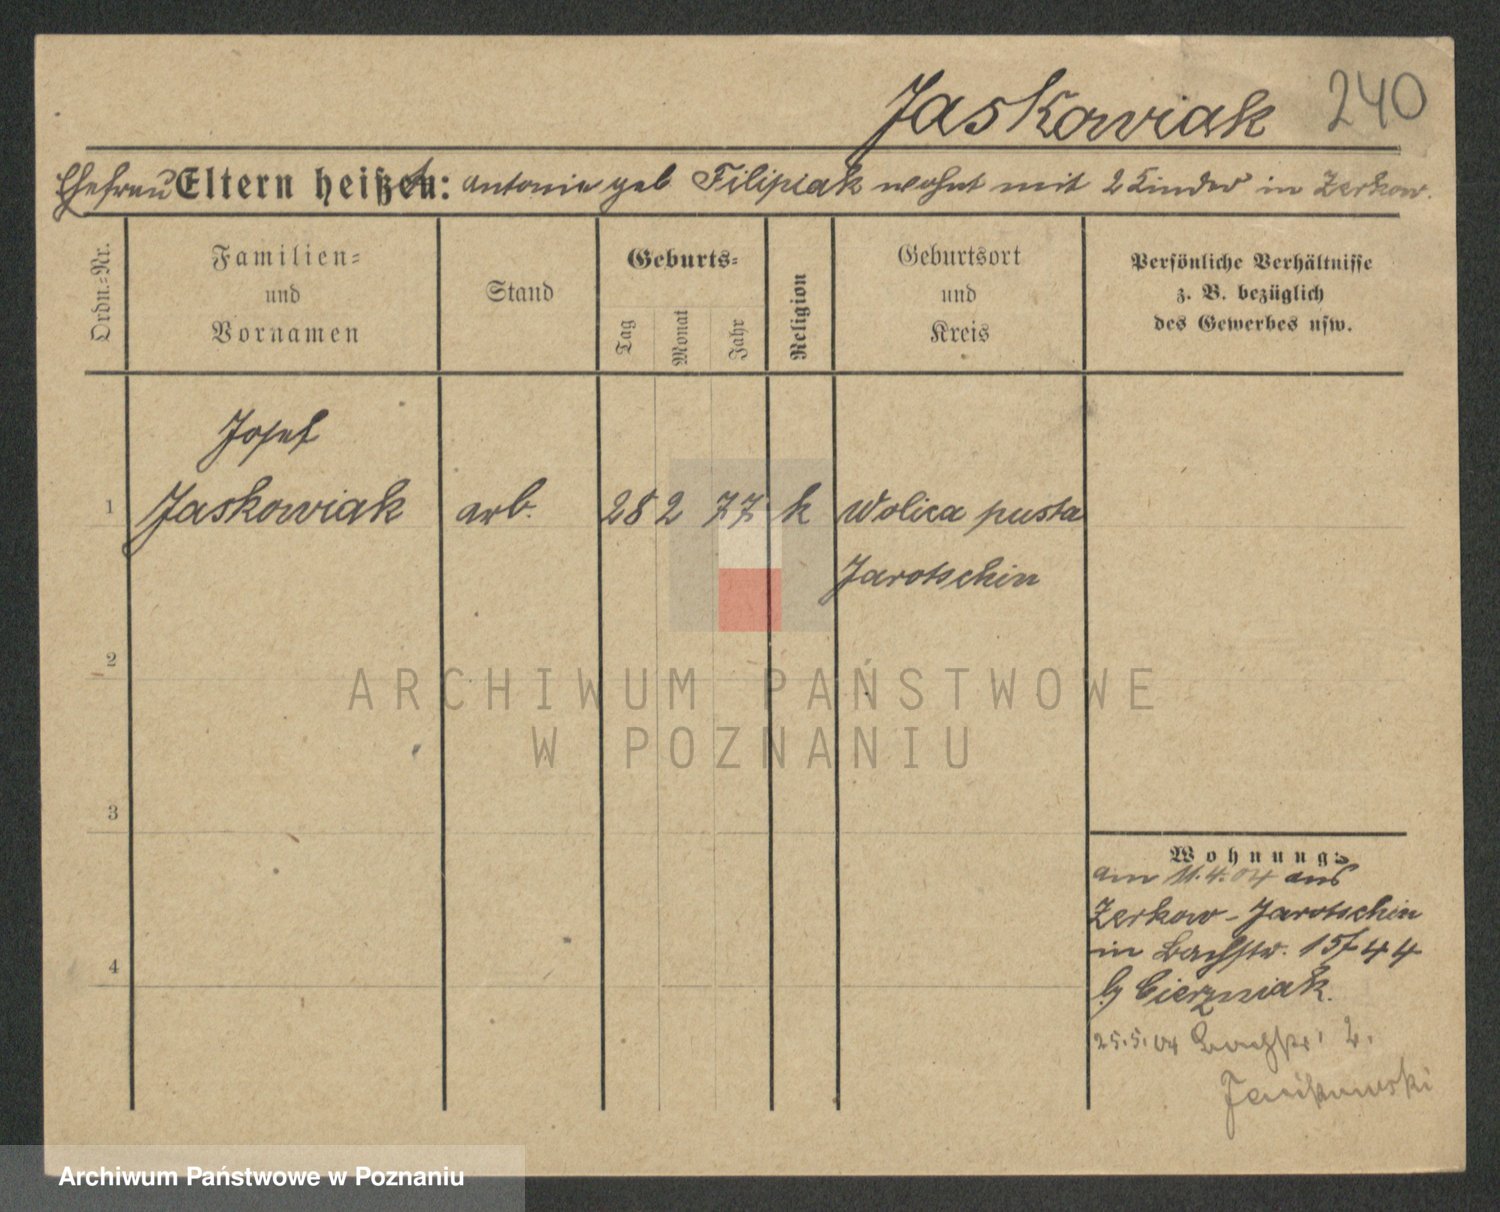 Jaskowiak 240
Ehefrau Eltern heißen: Antonie geb Filipiak wohnt mit 2 Kinder in Zerkow.
Ordn.-Nr.
Familien-
und
Vornamen
Stand
Geburts-
Tag
Monat
Jahr
Religion
Geburtsort
und
Kreis
Persönliche Verhältnisse
z. B. bezüglich
des Gewerbes usw.
Josef
1 Jaskowiak arb. 28 2 77 k Wolica pusta
Jarotschin
2
ARCHIWUM PAŃSTWOWE
W POZNANIU
3
Wohnung:
am 11.4.04 aus
Zerkow - Jarotschin
in Bachstr. 15
b/ Cierzniak.
4
25.5.04 Bachstr. 2.
Archiwum Państwowe w Poznaniu